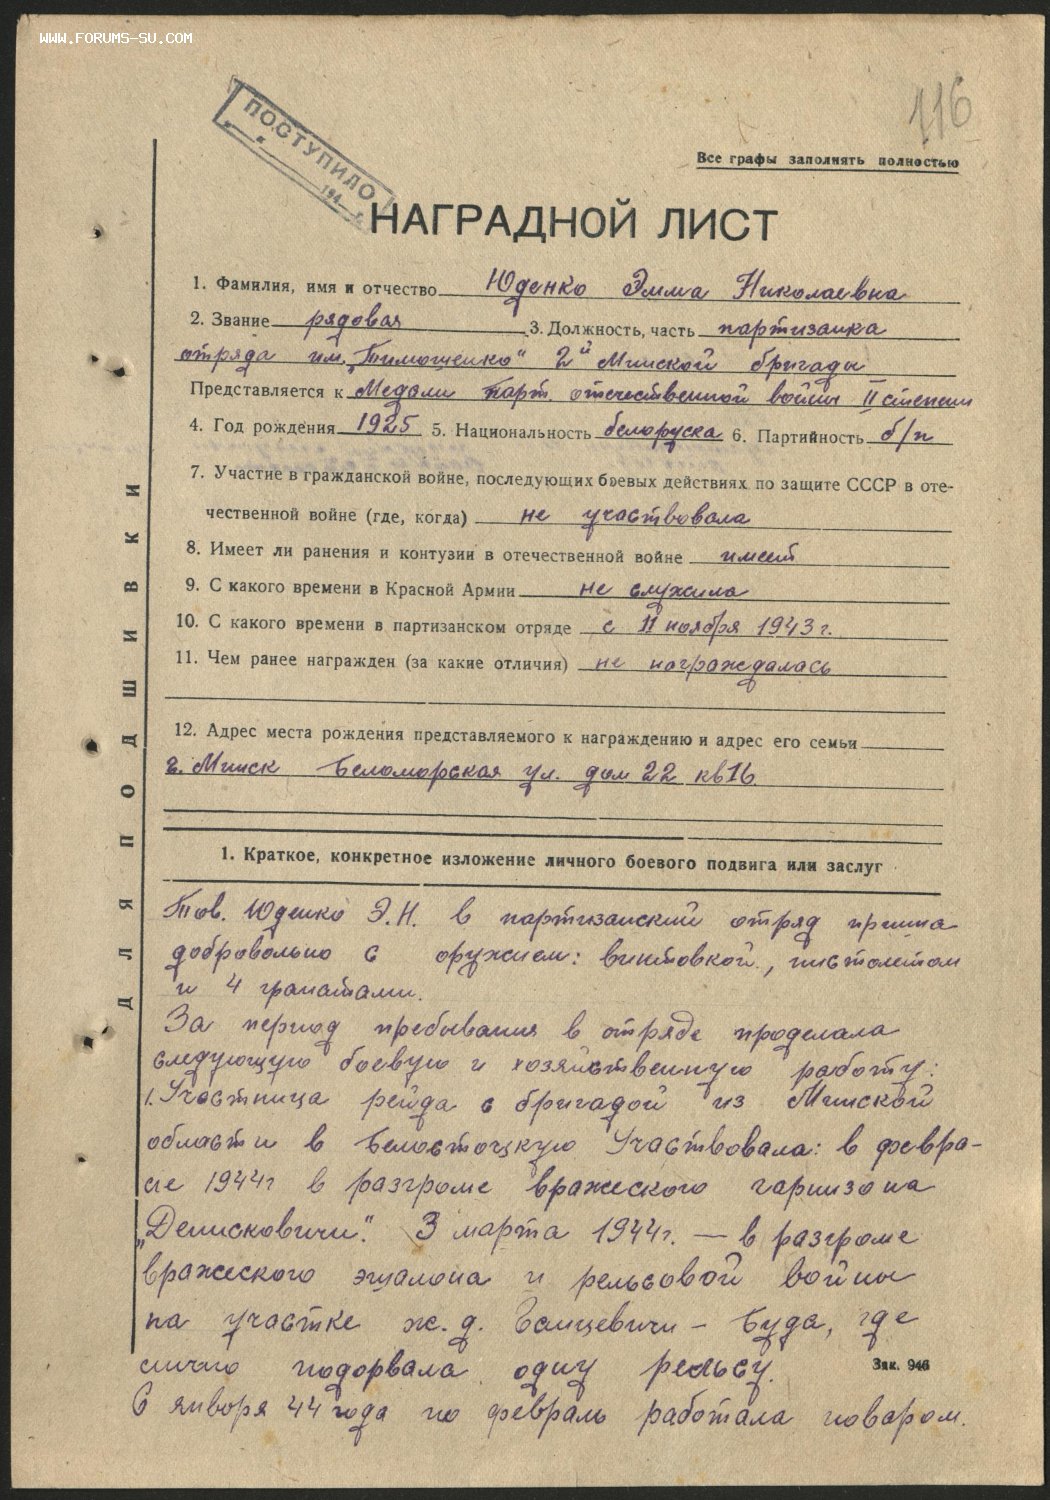 WWW.FORUMS-SU.COM
116
ПОСТУПИЛО
"   "   194  г.
Все графы заполнять полностью
НАГРАДНОЙ ЛИСТ
1. Фамилия, имя и отчество Юденко Эмма Николаевна
2. Звание рядовая 3. Должность, часть партизанка
отряда им. „Тимошенко" 2й Минской бригады
Представляется к Медали Парт. отечественной войны II степени
4. Год рождения 1925 5. Национальность белоруска 6. Партийность б/п
7. Участие в гражданской войне, последующих боевых действиях по защите СССР в оте-
чественной войне (где, когда) не участвовала
8. Имеет ли ранения и контузии в отечественной войне имеет
9. С какого времени в Красной Армии не служила
10. С какого времени в партизанском отряде с 11 ноября 1943 г.
11. Чем ранее награжден (за какие отличия) не награждалась
12. Адрес места рождения представляемого к награждению и адрес его семьи
г. Минск Беломорская ул. дом 22 кв 16
1. Краткое, конкретное изложение личного боевого подвига или заслуг
Тов. Юденко Э.Н. в партизанский отряд пришла
добровольно с оружием: винтовкой, пистолетом
и 4 гранатами.
За период пребывания в отряде проделала
следующую боевую и хозяйственную работу:
1. Участница рейда с бригадой из Минской
области в Белостоцкую Участвовала: в февра-
ле 1944г в разгроме вражеского гарнизона
„Денисковичи". 3 марта 1944г. — в разгроме
вражеского эшалона и рельсовой войны
на участке ж. д. Ганцевичи – Буда, где
лично подорвала одну рельсу.
Зак. 946
С января 44 года по февраль работала поваром.
ДЛЯ ПОДШИВКИ